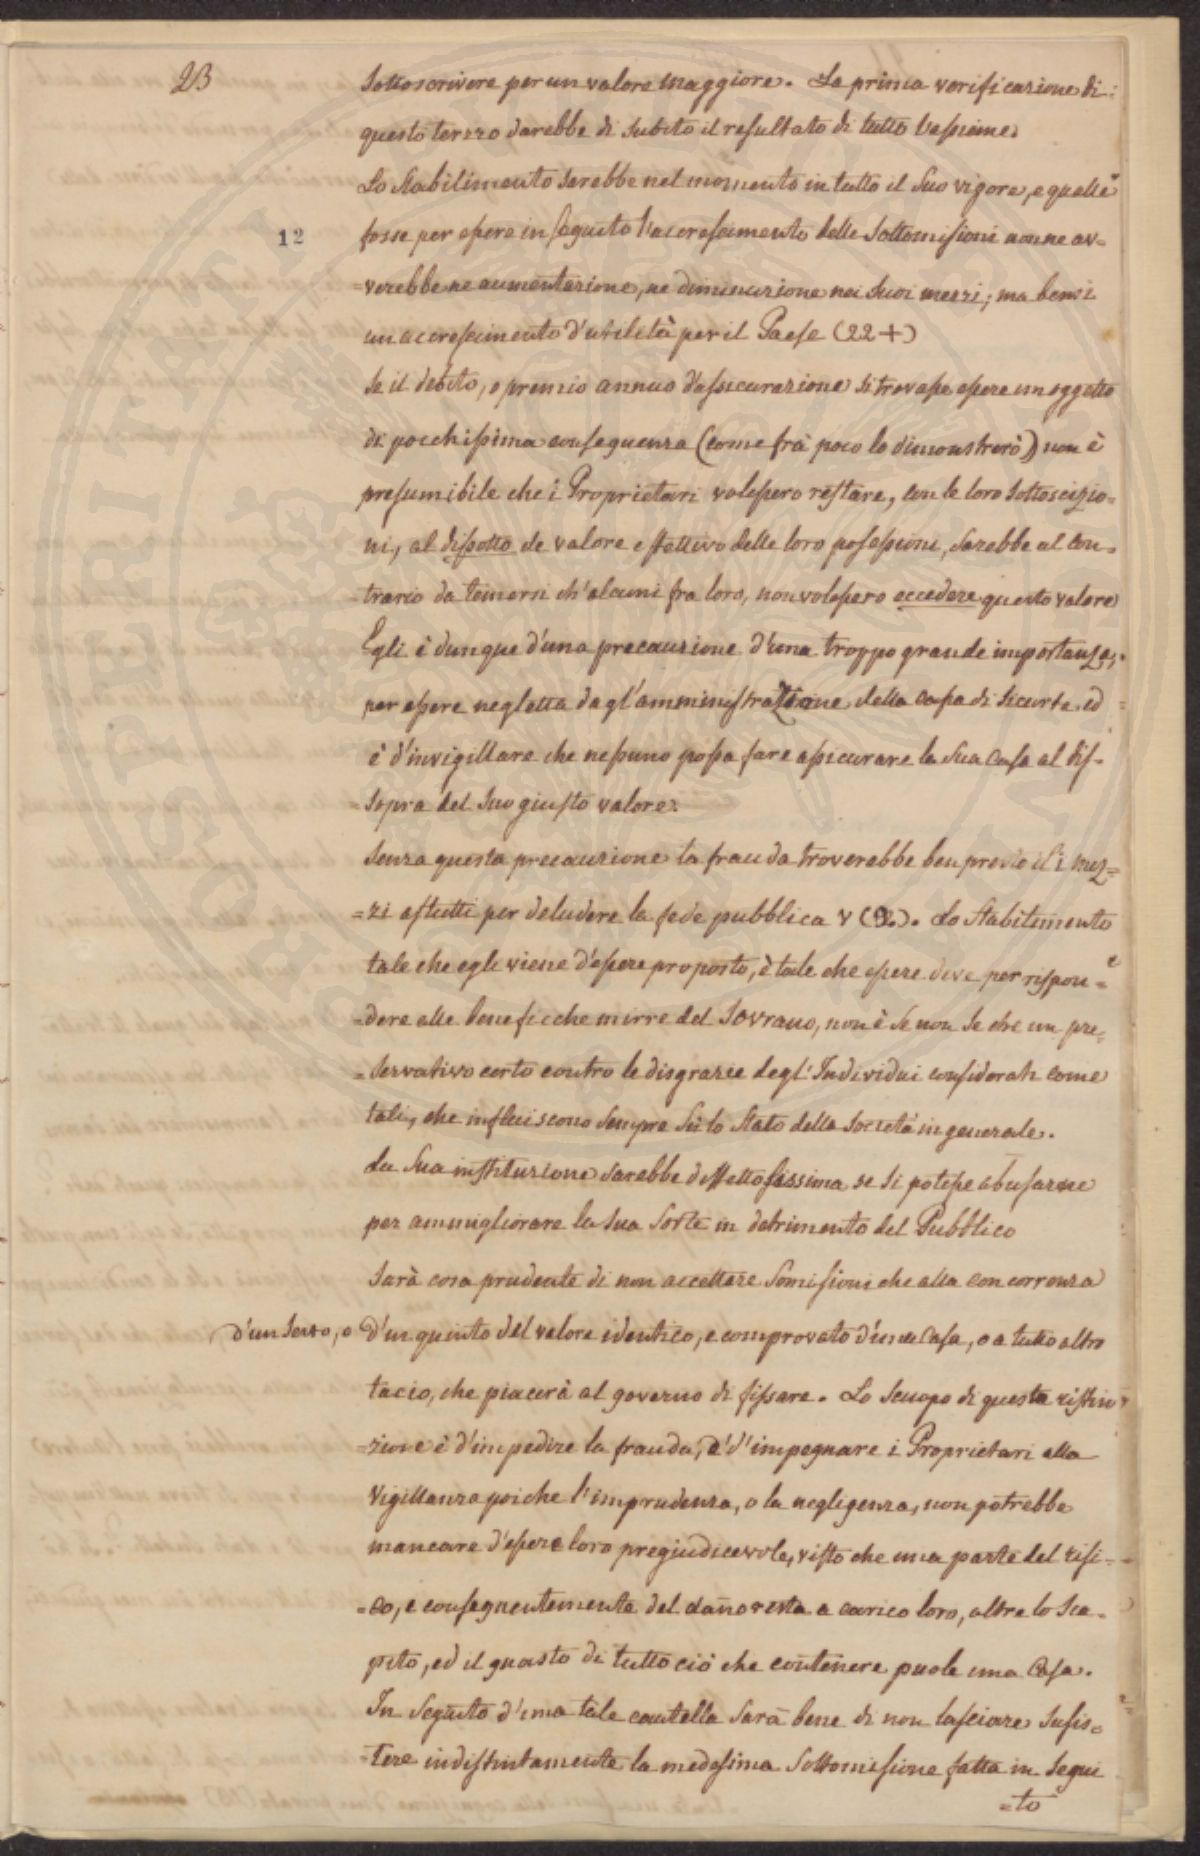 23
sottoscrivere per un valore maggiore. La prima verificazione di
questo terzzo darebbe di subito il resultato di tutto l'assieme.
Lo Stabilimento sarebbe nel momento in tutto il suo vigore, e quelle
12
fosse per essere in seguito l'accrescimento delle Sottomissioni non ne av=
=verebbe ne aumentazione, ne diminuzione nei suoi mezzi; ma bensi
un accrescimento d'utilità per il Paese (22+)
Se il debito, o premio annuo d'assicurazione si trovasse essere un oggetto
di pocchissima conseguenza (come frà poco lo dimonstrerò) non è
presumibile che i Proprietari volessero restare, con le loro sottoscizio=
ni, al dissotto de valore effettivo delle loro possessioni, sarebbe al con=
=trario da temersi ch'alcuni fra loro, non volessero eccedere questo valore
Egli è dunque d'una precauzione d'una troppo grande importanza,
per essere negletta dagl'amministrazione della cassa di sicurtà ed
è d'invigillare che nessuno possa fare assicurare la sua Casa al dis=
=sopra del suo giusto valore.
Senza questa precauzione la frauda troverebbe ben presto i mez=
=zi astutti per deludere la fede pubblica v (9.). Lo Stabilimento
tale che egli viene d'essere proposto, è tale che essere deve per rispon=
=dere alle benefiche mirre del Sovrano, non è se non se che un pre=
=servativo certo contro le disgrazie degl'Individui considerati come
tali, che influiscono sempre sù lo Stato della Società in generale.
La sua instituzione sarebbe diffettosissima se si potesse abusarne
per ammigliorare la sua sorte in detrimento del Pubblico
Sarà cosa prudente di non accettare Somissioni che alla concorrenza
d'un sesto, o d'un quinto del valore identico, e comprovato d'una Casa, o a tutto altro
tacio, che piacerà al governo di fissare. Lo scuopo di questa ristrin
=zione è d'impedire la frauda, e d'impegnare i Proprietari alla
Vigillanza poiche l'imprudenza, o la negligenza, non potrebbe
mancare d'essere loro pregiudicevole, visto che una parte del risi=
=co, e conseguentemente del daño resta a carico loro, oltre lo sca=
pito, ed il guasto di tutto ciò che contenere puole una Casa.
In seguito d'una tale cautella sarà bene di non lasciare susis=
=tere indistintamente la medesima Sottomissione fatta in segui
=to